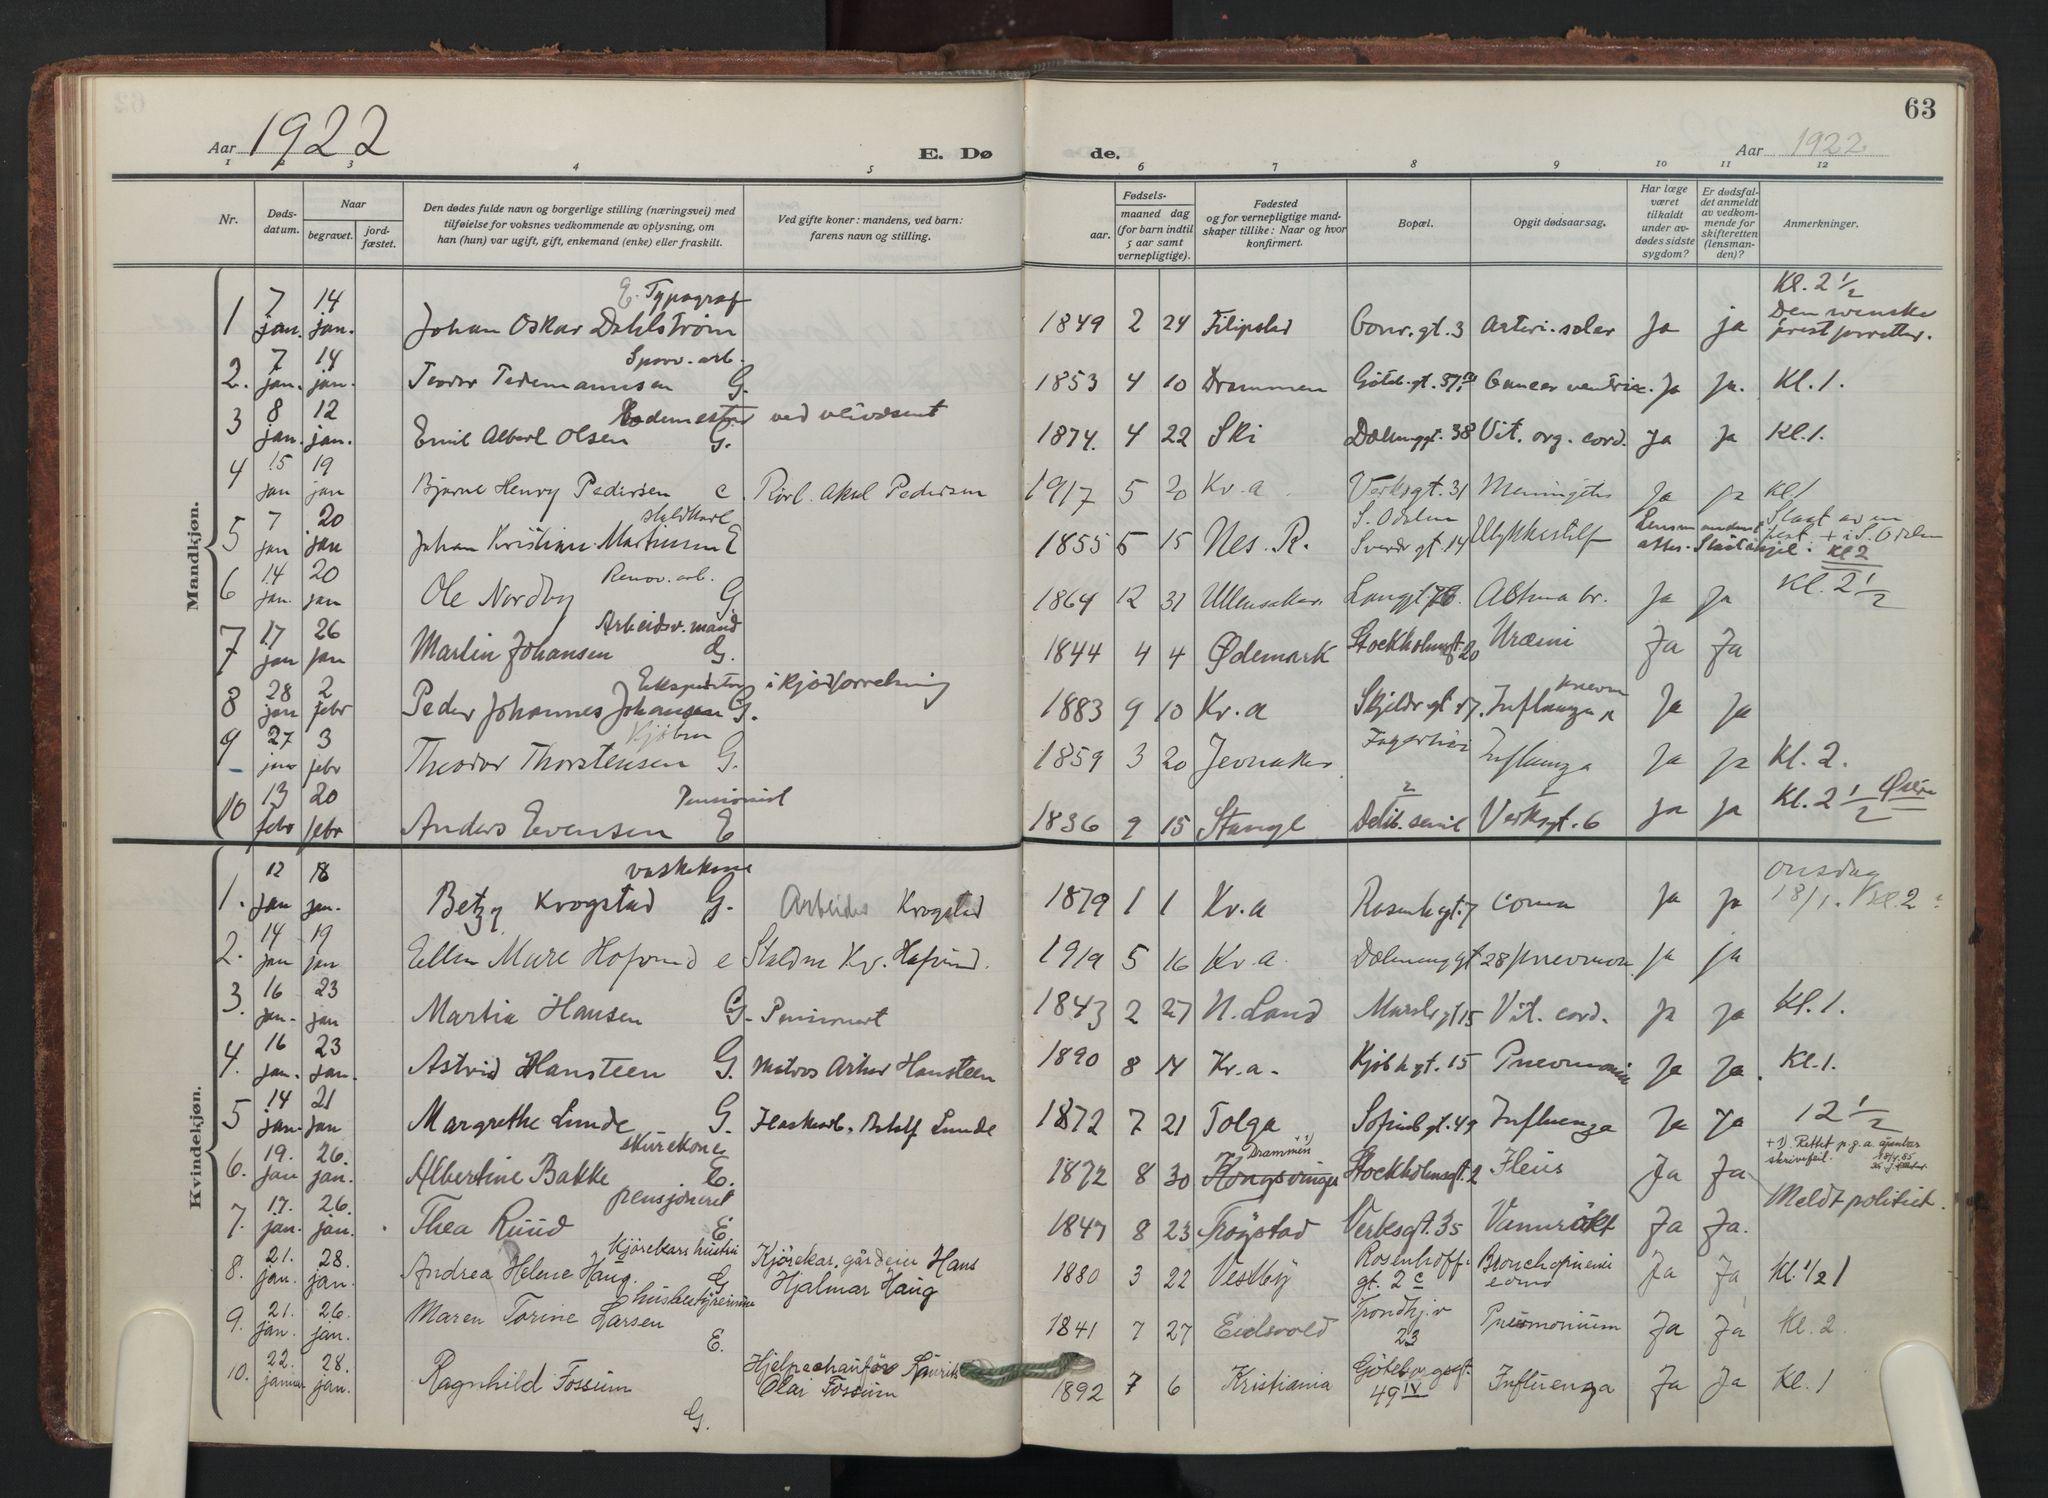 63
Aar 1922
E. Dø de.
Aar 1922
1 2 3 4 5 6 7 8 9 10 11 12
Nr.
Døds-
datum.
Naar
begravet.
jord-
fæstet.
Den dødes fulde navn og borgerlige stilling (næringsvei) med
tilføielse for voksnes vedkommende av oplysning, om
han (hun) var ugift, gift, enkemand (enke) eller fraskilt.
Ved gifte koner: mandens, ved barn:
farens navn og stilling.
Fødsels-
aar.
maaned dag
(for barn indtil
5 aar samt
vernepligtige).
Fødested
og for vernepligtige mand-
skaper tillike: Naar og hvor
konfirmert.
Bopæl.
Opgit dødsaarsag.
Har læge
været
tilkaldt
under av-
dødes sidste
sygdom?
Er dødsfal-
det anmeldt
av vedkom-
mende for
skifteretten
(lensman-
den)?
Anmerkninger.
Mandkjøn.
E. Typograf Kl. 2 1/2
1 7 jan. 14 jan. Johan Oskar Dahlstrøm 1849 2 24 Filipstad gt. 3 Ja ja Den svenske
prest forretter.
2. 7 jan. 14 jan. Teodor Tidemannsen G. 1853 4 10 Drammen Göteb. gt. 37 Cancer ventric. Ja Ja. Kl. 1.
3 8 jan. 12 jan. Emil Albert Olsen G. ved 1874. 4 22 Ski Dælenggt. 38 Vit. org. cord. Ja Ja Kl. 1.
4 15 jan 19 jan Bjarne Henry Pedersen e. Aksel Pedersen 1917 5 20 Kr.a Verksgt. 31 Meningitis Ja Ja Kl 1
Staldkarl S. Odalen
5 7 jan 20 jan Johan Kristian Martinsen E 1855 5 15 Nes. R. gt 14 Ulykkestilf Slaat av en
hest + i S. Odalen
Kl 2
Renov. arb.
6 14 jan. 20 jan Ole Nordby G 1864 12 31 Ullensaker. Langgt Astma br. Ja Ja Kl. 2 1/2
Arbeidsv. mand
7 17 jan 26 jan Martin Johansen G. 1844 4 4 Ødemark Stockholmsgt. 20 Uræmi Ja Ja
Ekspeditør i kjødforretning
8 28 jan 2 febr Peder Johannes Johansen G. 1883 9 10 Kr.a gt 17. Influenza pneum Ja Ja
9 27 jan 3 febr Theodor Thorstensen G. 1859 3 20 Jevnaker Fagerheim Influenza Ja Ja Kl. 2.
Pensionist
10 13 febr 20 febr Anders Evensen E 1836 9 15 Stange 2 Delib. senil 1 Verksgt. 6 Ja Ja Kl. 2 1/2 Østre
Kvindekjøn.
vaskekone onsdag
1. 12 jan 18 jan. Betzy Krogstad G. Arbeider Krogstad 1879 1 1 Kr.a Rosenhgt. 7 Coma Ja Ja 18/1. Kl. 2
2. 14 jan 19 jan Ellen Hofsrud e Kr. Hafsrud. 1919 5 16 Kr.a. Dælenenggt 28 pneumon. Ja ja
3. 16 jan. 23 jan Martia Hansen G. Pensionert 1843 2 27 N. Land gt 15 Vit. cord. Ja Ja Kl. 1.
4. 16 jan. 23 jan. Astrid Hansteen G. Matros Artur Hansteen 1890 8 14 Kr.a. Kjøbh gt. 15 Pneumonia Ja Ja. Kl. 1.
5 14 jan. 21 jan Margrethe Lunde G. Adolf Lunde 1872 7 21 Tolga Sofienbgt. 49 Influenza Ja Ja 12 1/2
skurekone Drammen +1) +1) Rettet p.g.a. åpenbar
skrivefeil.
6. 19. jan 26. jan. Albertine Bakke E. 1872 8 30 Kongsvinger Stockholmsgt. 2 Ileus Ja Ja
pensjoneret Meldt politiet.
7. 17. jan. 26. jan. Thea Ruud E 1847 8 23 Trøgstad Verksgt. 35 Vanrøkt Ja Ja.
Kjørekars hustru
8. 21. jan. 28. jan. Andrea Helene Haug. G Kjørekar, gårdeier Hans
Hjalmar Haug 1880 3 22 Vestby Rosenhoff-
gt. 2 c Bronchopneumi Ja Ja Kl. 1/2 1
husbestyrerinne
9. 21. jan. 26. jan. Maren Torine Larsen E. 1841 7 27 Eidsvold Trondhj. v
23 Ja Ja Kl. 2
10. 22. januar 28. jan. Ragnhild Fossum G. Hjelpechauffør Laurits
Olai Fossum 1892 7 6 Kristiania Göteborgsgt.
49 IV Influenza Ja Ja Kl. 1